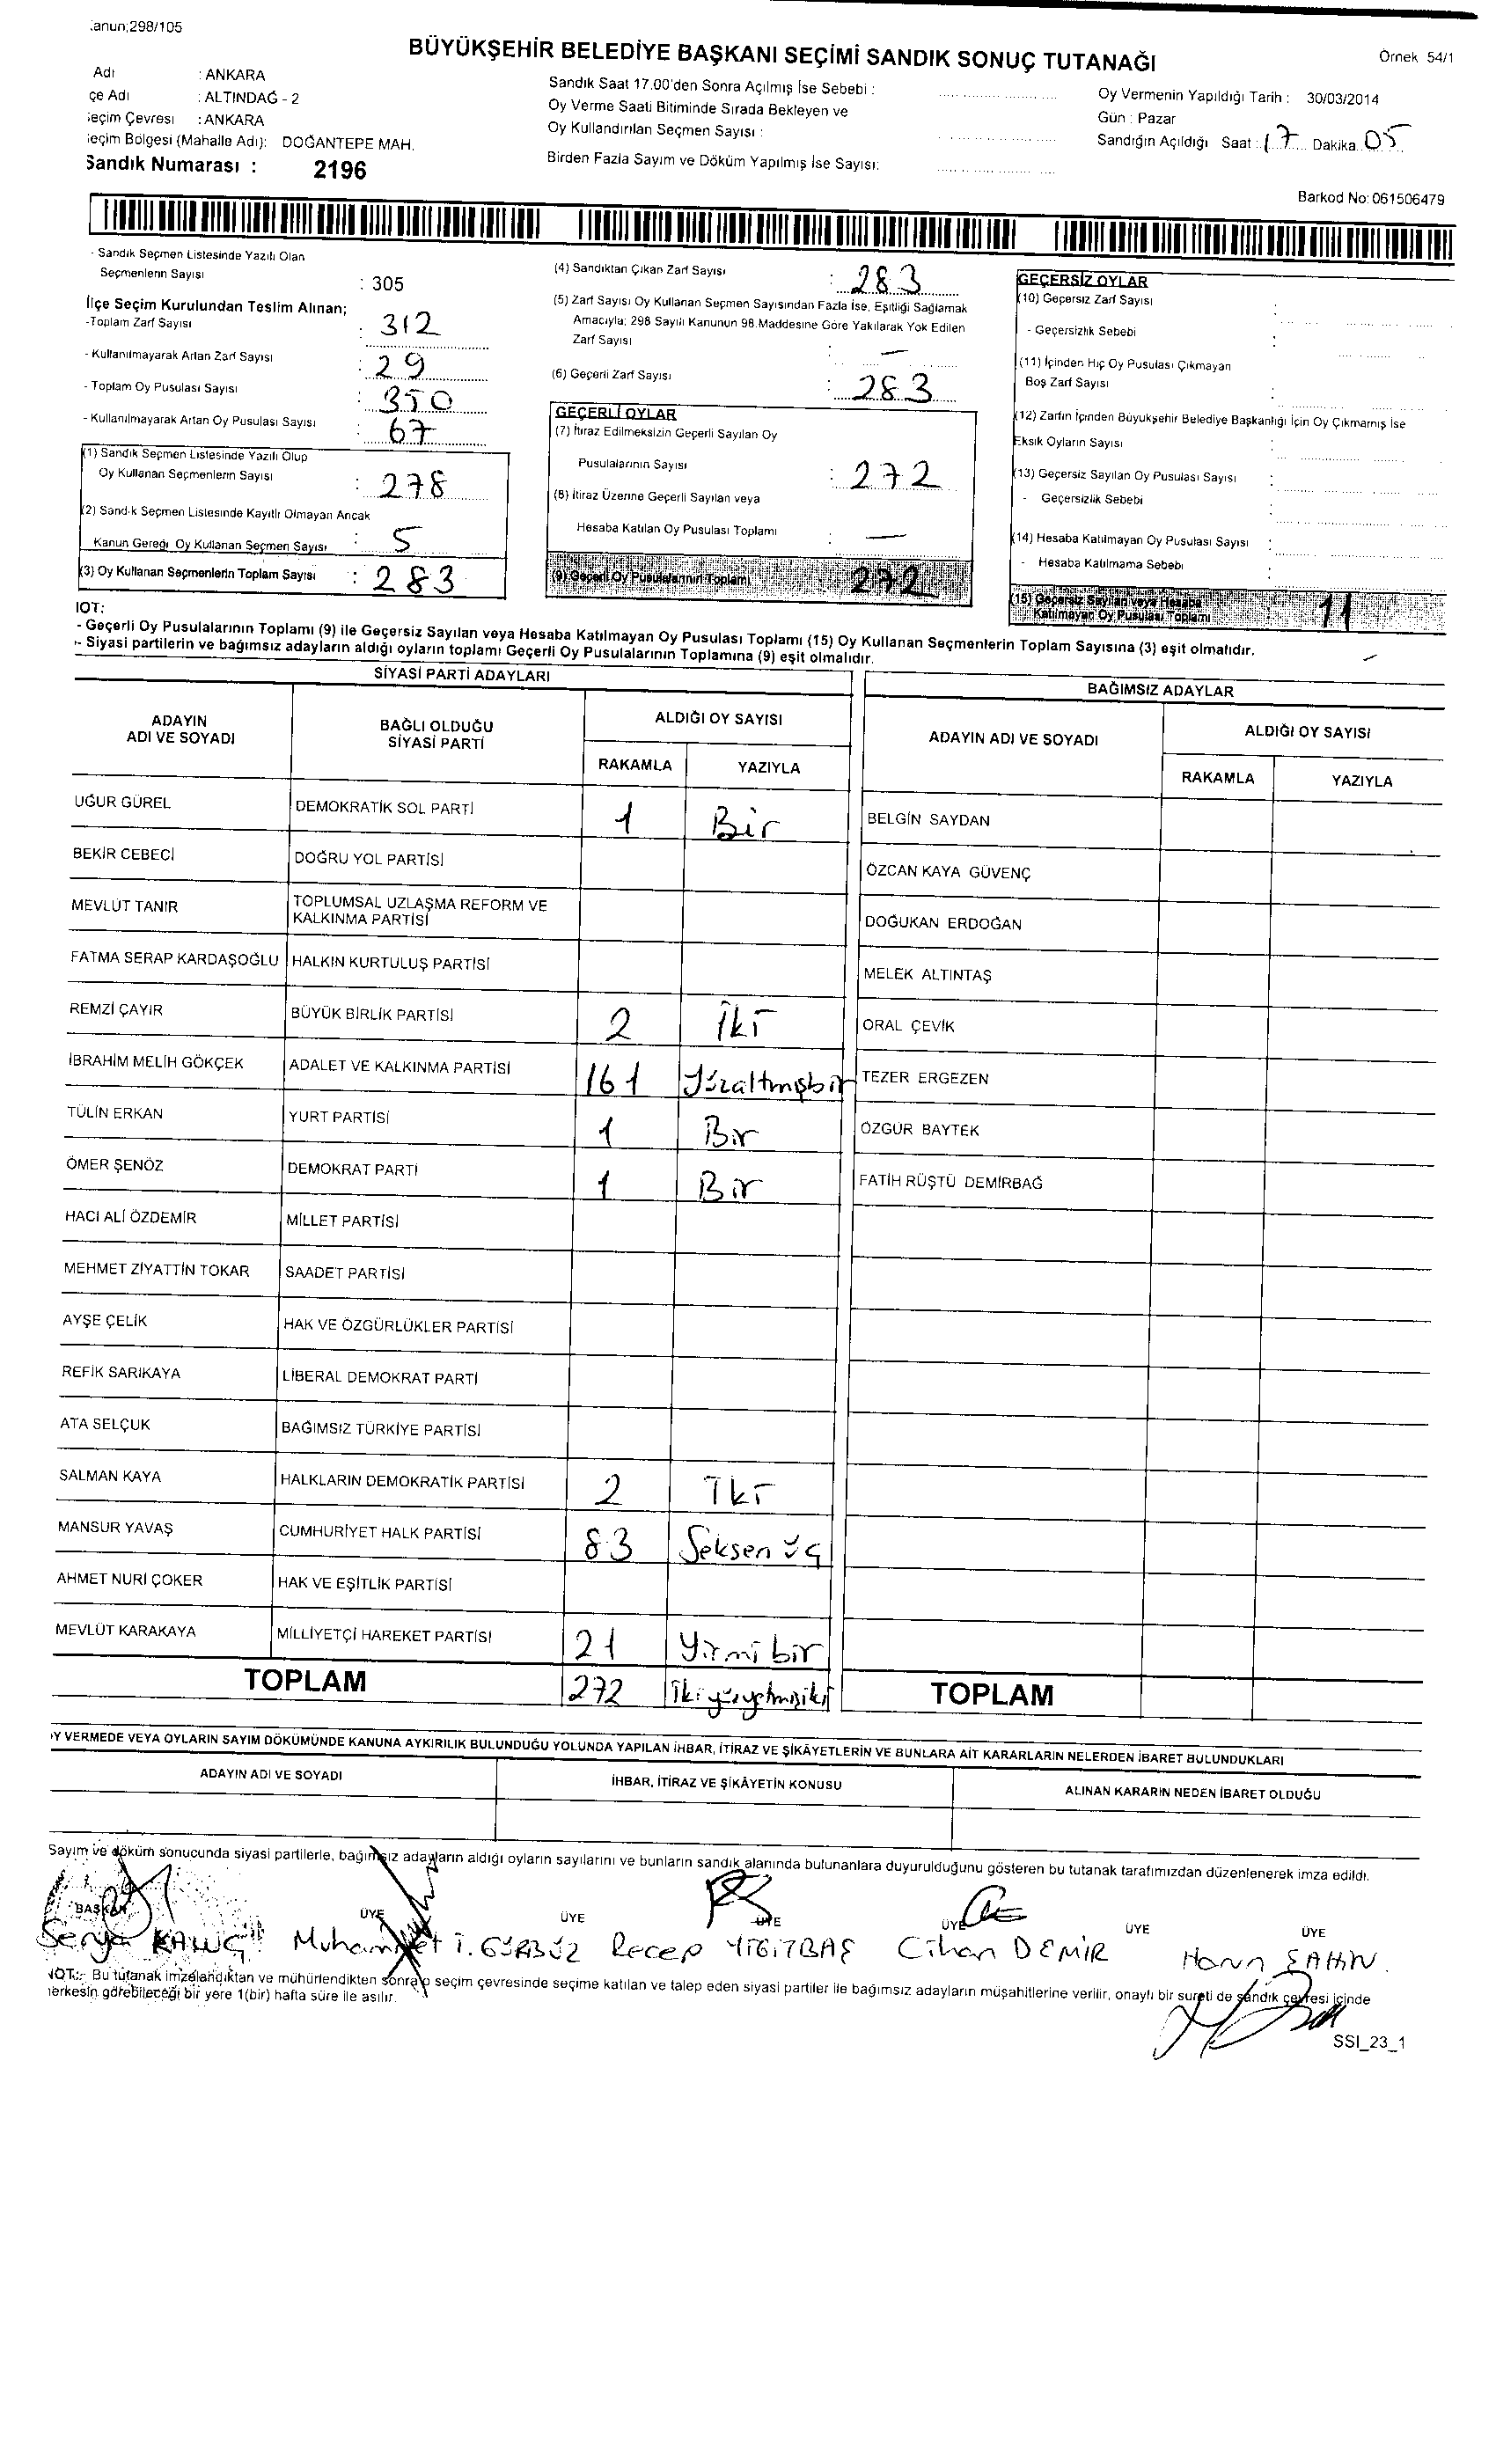 .anun;298/105
BÜYÜKŞEHİR BELEDİYE BAŞKANI SEÇİMİ SANDIK SONUÇ TUTANAĞI
Örnek 54/1
Adı : ANKARA
çe Adı : ALTINDAĞ - 2
eçim Çevresi : ANKARA
eçim Bölgesi (Mahalle Adı): DOĞANTEPE MAH.
Sandık Numarası : 2196
Sandık Saat 17.00'den Sonra Açılmış İse Sebebi :
Oy Verme Saati Bitiminde Sırada Bekleyen ve
Oy Kullandırılan Seçmen Sayısı :
Birden Fazla Sayım ve Döküm Yapılmış İse Sayısı:
Oy Vermenin Yapıldığı Tarih : 30/03/2014
Gün : Pazar
Sandığın Açıldığı Saat : 17 Dakika 05
Barkod No: 061506479
- Sandık Seçmen Listesinde Yazılı Olan
Seçmenlerin Sayısı : 305
İlçe Seçim Kurulundan Teslim Alınan;
-Toplam Zarf Sayısı : 312
- Kullanılmayarak Artan Zarf Sayısı : 29
- Toplam Oy Pusulası Sayısı : 350
- Kullanılmayarak Artan Oy Pusulası Sayısı : 67
(1) Sandık Seçmen Listesinde Yazılı Olup
Oy Kullanan Seçmenlerin Sayısı : 278
(2) Sandık Seçmen Listesinde Kayıtlı Olmayan Ancak
Kanun Gereği Oy Kullanan Seçmen Sayısı : 5
(3) Oy Kullanan Seçmenlerin Toplam Sayısı : 283
(4) Sandıktan Çıkan Zarf Sayısı : 283
(5) Zarf Sayısı Oy Kullanan Seçmen Sayısından Fazla İse, Eşitliği Sağlamak
Amacıyla; 298 Sayılı Kanunun 98.Maddesine Göre Yakılarak Yok Edilen
Zarf Sayısı : —
(6) Geçerli Zarf Sayısı : 283
GEÇERLİ OYLAR
(7) İtiraz Edilmeksizin Geçerli Sayılan Oy
Pusulalarının Sayısı : 272
(8) İtiraz Üzerine Geçerli Sayılan veya
Hesaba Katılan Oy Pusulası Toplamı : —
(9) Geçerli Oy Pusulalarının Toplamı 272
GEÇERSİZ OYLAR
(10) Geçersiz Zarf Sayısı :
- Geçersizlik Sebebi :
(11) İçinden Hiç Oy Pusulası Çıkmayan
Boş Zarf Sayısı :
(12) Zarfın İçinden Büyükşehir Belediye Başkanlığı İçin Oy Çıkmamış İse
Eksik Oyların Sayısı :
(13) Geçersiz Sayılan Oy Pusulası Sayısı :
- Geçersizlik Sebebi
(14) Hesaba Katılmayan Oy Pusulası Sayısı :
- Hesaba Katılmama Sebebi :
(15) Geçersiz Sayılan veya Hesaba
Katılmayan Oy Pusulası Toplamı 11
IOT:
- Geçerli Oy Pusulalarının Toplamı (9) ile Geçersiz Sayılan veya Hesaba Katılmayan Oy Pusulası Toplamı (15) Oy Kullanan Seçmenlerin Toplam Sayısına (3) eşit olmalıdır.
- Siyasi partilerin ve bağımsız adayların aldığı oyların toplamı Geçerli Oy Pusulalarının Toplamına (9) eşit olmalıdır.
SİYASİ PARTİ ADAYLARI
ADAYIN ADI VE SOYADI
BAĞLI OLDUĞU SİYASİ PARTİ
ALDIĞI OY SAYISI
RAKAMLA YAZIYLA
UĞUR GÜREL DEMOKRATİK SOL PARTİ 1 Bir
BEKİR CEBECİ DOĞRU YOL PARTİSİ
MEVLÜT TANIR TOPLUMSAL UZLAŞMA REFORM VE KALKINMA PARTİSİ
FATMA SERAP KARDAŞOĞLU HALKIN KURTULUŞ PARTİSİ
REMZİ ÇAYIR BÜYÜK BİRLİK PARTİSİ 2 İki
İBRAHİM MELİH GÖKÇEK ADALET VE KALKINMA PARTİSİ 161 Yüzaltmışbir
TÜLİN ERKAN YURT PARTİSİ 1 Bir
ÖMER ŞENÖZ DEMOKRAT PARTİ 1 Bir
HACI ALİ ÖZDEMİR MİLLET PARTİSİ
MEHMET ZİYATTİN TOKAR SAADET PARTİSİ
AYŞE ÇELİK HAK VE ÖZGÜRLÜKLER PARTİSİ
REFİK SARIKAYA LİBERAL DEMOKRAT PARTİ
ATA SELÇUK BAĞIMSIZ TÜRKİYE PARTİSİ
SALMAN KAYA HALKLARIN DEMOKRATİK PARTİSİ 2 İki
MANSUR YAVAŞ CUMHURİYET HALK PARTİSİ 83 Seksen üç
AHMET NURİ ÇOKER HAK VE EŞİTLİK PARTİSİ
MEVLÜT KARAKAYA MİLLİYETÇİ HAREKET PARTİSİ 21 Yirmi bir
TOPLAM 272 İkiyüzyetmişiki
BAĞIMSIZ ADAYLAR
ADAYIN ADI VE SOYADI
ALDIĞI OY SAYISI
RAKAMLA YAZIYLA
BELGİN SAYDAN
ÖZCAN KAYA GÜVENÇ
DOĞUKAN ERDOĞAN
MELEK ALTINTAŞ
ORAL ÇEVİK
TEZER ERGEZEN
ÖZGÜR BAYTEK
FATİH RÜŞTÜ DEMİRBAĞ
TOPLAM
Y VERMEDE VEYA OYLARIN SAYIM DÖKÜMÜNDE KANUNA AYKIRILIK BULUNDUĞU YOLUNDA YAPILAN İHBAR, İTİRAZ VE ŞİKÂYETLERİN VE BUNLARA AİT KARARLARIN NELERDEN İBARET BULUNDUKLARI
ADAYIN ADI VE SOYADI
İHBAR, İTİRAZ VE ŞİKÂYETİN KONUSU
ALINAN KARARIN NEDEN İBARET OLDUĞU
Sayım ve döküm sonucunda siyasi partilerle, bağımsız adayların aldığı oyların sayılarını ve bunların sandık alanında bulunanlara duyurulduğunu gösteren bu tutanak tarafımızdan düzenlenerek imza edildi.
BAŞKAN ÜYE ÜYE ÜYE ÜYE ÜYE ÜYE
KALUÇ Muhammet İ. GÜRBÜZ Recep YİĞİTBAŞ Cihan DEMİR ŞAHİN
NOT:- Bu tutanak imzalandıktan ve mühürlendikten sonra o seçim çevresinde seçime katılan ve talep eden siyasi partiler ile bağımsız adayların müşahitlerine verilir, onaylı bir sureti de sandık çevresi içinde
herkesin görebileceği bir yere 1(bir) hafta süre ile asılır.
SSI_23_1